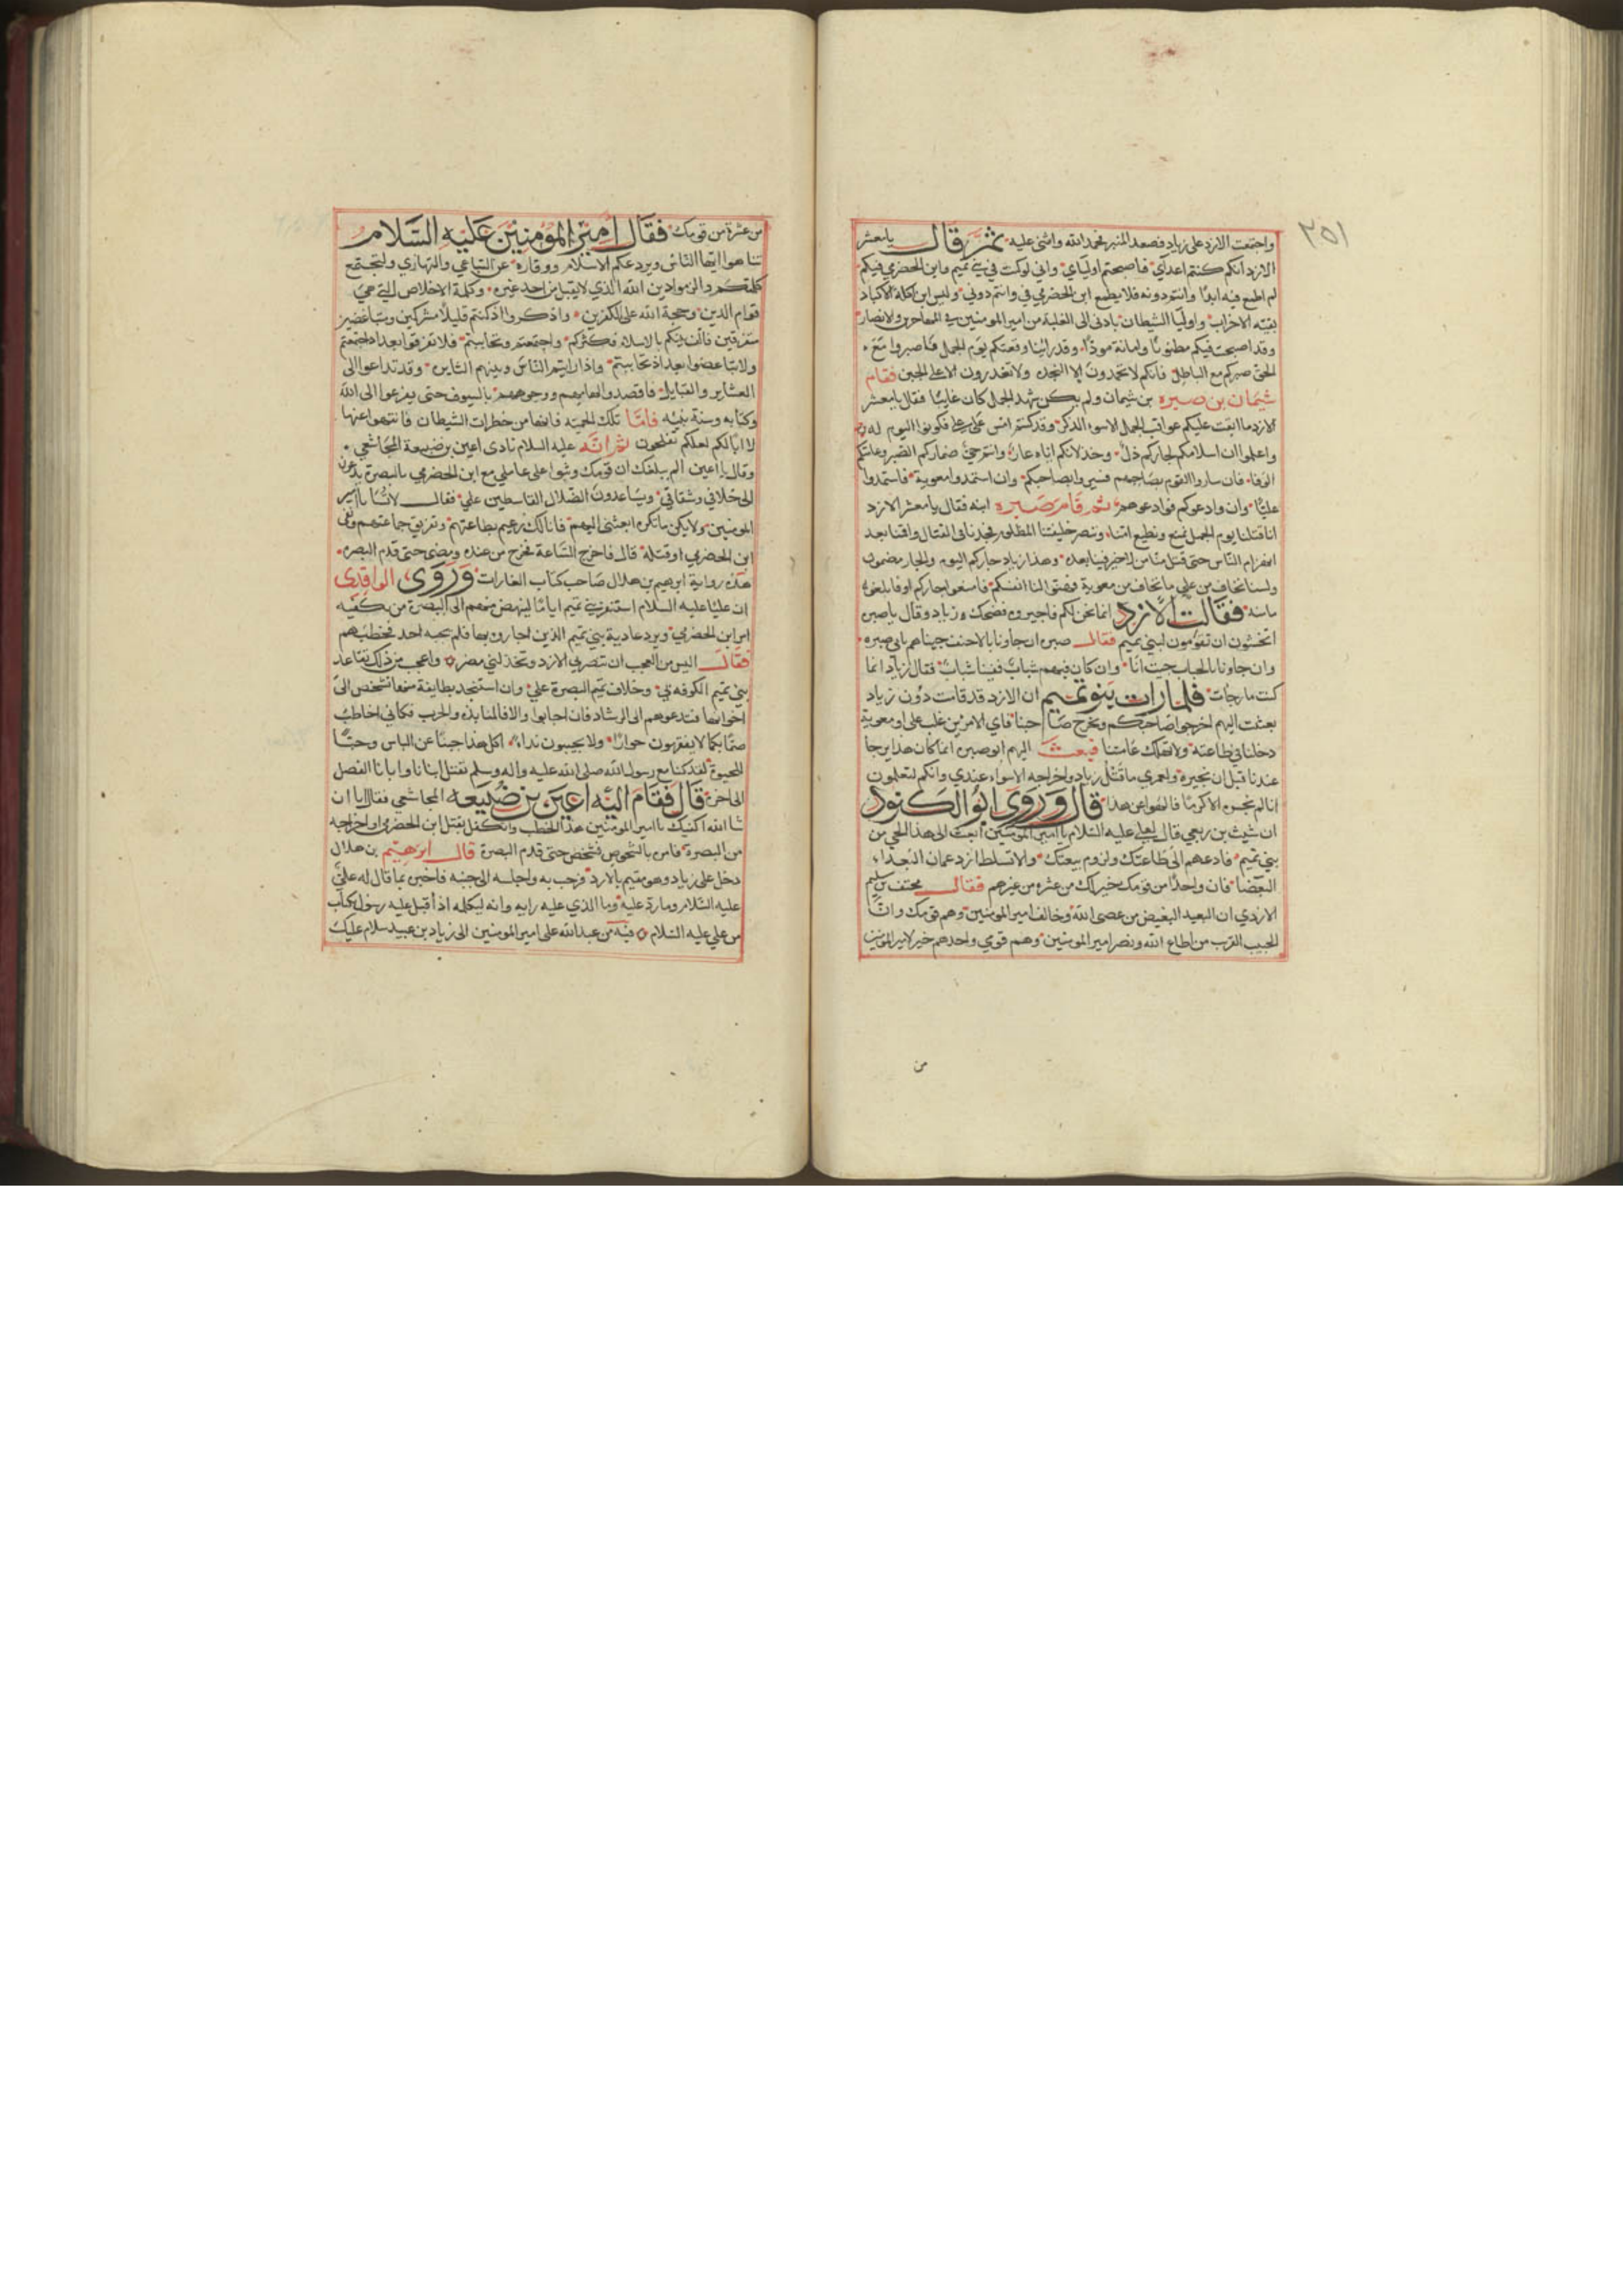 ٢٥١
واجتمعت الازد على زياد فصعد المنبر فحمد الله واثنى عليه ثم قال يا معشر
الازد انكم كنتم اعداي فاصبحتم اولياي واني لو كنت في بني تميم وابن الحضرمي فيكم
لم اطمع فيه ابدا وانتم دونه فلا يطمع ابن الحضرمي في وانتم دوني وليس ابن اكلة الاكباد
بقية الاحزاب واوليا الشيطان بادنى الى الغلبة من امير المومنين في المهاجرين والانصار
وقد اصبحت فيكم مضمونا وامانة موداة وقد راينا وقعتكم يوم الجمل فاصبروا مع
الحق صبركم مع الباطل فانكم لا تحمدون الا النجدة ولا تعذرون الا على الجبن فقام
شيمان بن صبره بن شيمان ولم يكن شهد الجمل كان غايبا فقال يا معشر
الازد ما ابقت عليكم عواقب الجمل الا سوء الذكر وقد كنتم امس على علي فكونوا اليوم له
واعلموا ان اسلامكم لجاركم ذل وخذلانكم اياه عار وانتم حي مضماركم الصبر وعاقبتكم
الوفا فان سار القوم بصاحبهم فسيروا بصاحبكم وان استمدوا معوية فاستمدوا
عليا وان وادعوكم فوادعوهم ثم قام صبره ابنه فقال يا معشر الازد
انا قلنا يوم الجمل نمنع مصرنا ونطيع امنا وننصر خليفتنا المظلوم فجدنا في القتال واقمنا بعد
انهزام الناس حتى قتل منا من لا خير فينا بعده وهذا زياد جاركم اليوم والجار مضمون
ولسنا نخاف من علي ما نخاف من معوية فهبوا لنا انفسكم وامنعوا جاركم او فابلغوه
مامنه فقالت الازد انما نحن لكم تبع فاجيروه فضحك زياد وقال يا صبره
اتخشون ان لا تقومون لبني تميم فقال صبره ان جاونا بالاحنف جيناهم بابي صبره
وان جاونا بالحباب جيت انا وان كان فيهم شباب ففينا شباب فقال زياد انما
كنت مازحا فلما رات بنو تميم ان الازد قد قامت دون زياد
بعثت اليهم اخرجوا صاحبكم ونخرج صاحبنا فاي الاميرين غلب علي او معوية
دخلنا في طاعته ولا نهلك عامتنا فبعث اليهم ابو صبره انما كان هذا يرجا
عندنا قبل ان نجيره ولعمري ما قتل زياد واخراجه الا سواء عندي وانكم لتعلمون
انا لم نجره الا كرما فالهوا عن هذا قال وروى ابو الكنود
ان شبث بن ربعي قال لعلي عليه السلام يا امير المومنين ابعث الى هذا الحي من
بني تميم فادعهم الى طاعتك ولزوم بيعتك ولا تسلط ازد عمان البعداء
البغضا فان واحدا من قومك خير لك من عشره من غيرهم فقال مخنف بن سليم
الازدي ان البعيد البغيض من عصى الله وخالف امير المومنين وهم قومك وان
الحبيب القريب من اطاع الله ونصر امير المومنين وهم قومي واحدهم خير لامير المومنين
من
من عشرة من قومك فقال امير المومنين عليه السلام
تناهوا ايها الناس ويردعكم الاسلام ووقاره عن التباغي والتهاذي ولتجتمع
كلمتكم والزموا دين الله الذي لا يقبل من احد غيره وكلمة الاخلاص التي هي
قوام الدين وحجة الله على الكفرين واذكروا اذ كنتم قليلا مشركين متباغضين
متفرقين فالف بينكم بالاسلام فكثركم واجتمعتم وتحاببتم فلا تفرقوا بعد اذ اجتمعتم
ولا تباغضوا بعد اذ تحاببتم واذا رايتم الناس وبينهم النايره وقد تداعوا الى
العشاير والقبايل فاقصدوا لهامهم ووجوههم بالسيوف حتى يفزعوا الى الله
وكتابه وسنة نبيه فاما تلك الحمية فانها من خطرات الشيطان فانتهوا عنها
لا ابا لكم لعلكم تفلحون ثم انه عليه السلام نادى اعين بن ضبيعة المجاشعي
وقال يا اعين الم يبلغك ان قومك وثبوا على عاملي مع ابن الحضرمي بالبصرة يدعون
الى خلافي وشقاقي ويساعدون الضلال القاسطين علي فقال لا تسا يا امير
المومنين ولا يكن ما تكره ابعثني اليهم فانا لك زعيم بطاعتهم وتفريق جماعتهم ونفي
ابن الحضرمي او قتله قال فاخرج الساعة فخرج من عنده ومضى حتى قدم البصره
هذه رواية ابرهيم بن هلال صاحب كتاب الغارات وروى الواقدي
ان عليا عليه السلام استنفر بني تميم اياما لينهض منهم الى البصرة من يكفيه
امر ابن الحضرمي ويرد عادية بني تميم الذين اجاروه بها فلم يجبه احد فخطبهم
فقال اليس من العجب ان تنصرني الازد وتخذلني مضر واعجب من ذلك تقاعد
بني تميم الكوفه بي وخلاف تميم البصرة علي وان استنجد بطايفة منها تشخص الى
اخوانها فتدعوهم الى الرشاد فان اجابوا والا فالمنابذه والحرب فكاني اخاطب
صما بكما لا يفقهون حوارا ولا يجيبون نداء اكل هذا جبنا عن الباس وحبا
للحيوة لقد كنا مع رسول الله صلى الله عليه واله وسلم نقتل ابنانا وابانا الفصل
الى اخره قال فقام اليه اعين بن ضبيعه المجاشعي فقال انا ان
شا الله اكفيك يا امير المومنين هذا الخطب واتكفل بقتل ابن الحضرمي او اخراجه
من البصرة فامره بالشخوص فشخص حتى قدم البصرة قال ابرهيم بن هلال
دخل على زياد وهو مقيم بالازد فرحب به واجلسه الى جنبه فاخبره بما قال له علي
عليه السلام وما رد عليه وما الذي عليه رايه وانه ليكلمه اذ اقبل عليه رسول بكتاب
من علي عليه السلام فيه من عبد الله علي امير المومنين الى زياد بن عبيد سلام عليك